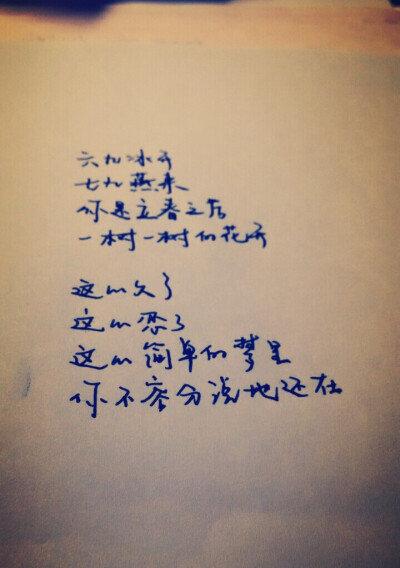 六九冰开
七九燕来
你是立春之后
一树一树的花开
这么久了
这么恋了
这么简单的梦里
你不容分说地还在